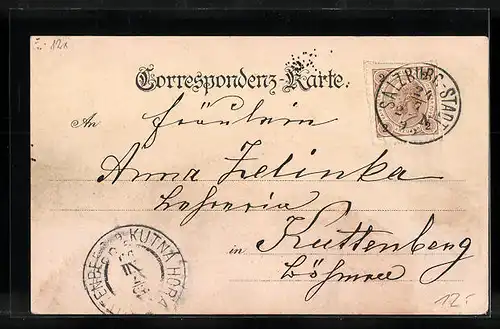 z: 12.
Correspondenz-Karte.
SALZBURG-STADT
An Fräulein
Anna Zelinka
Lehrerin
in Kuttenberg
Böhmen
KUTNÁ HORA
KUTTENBERG
XII
12.-